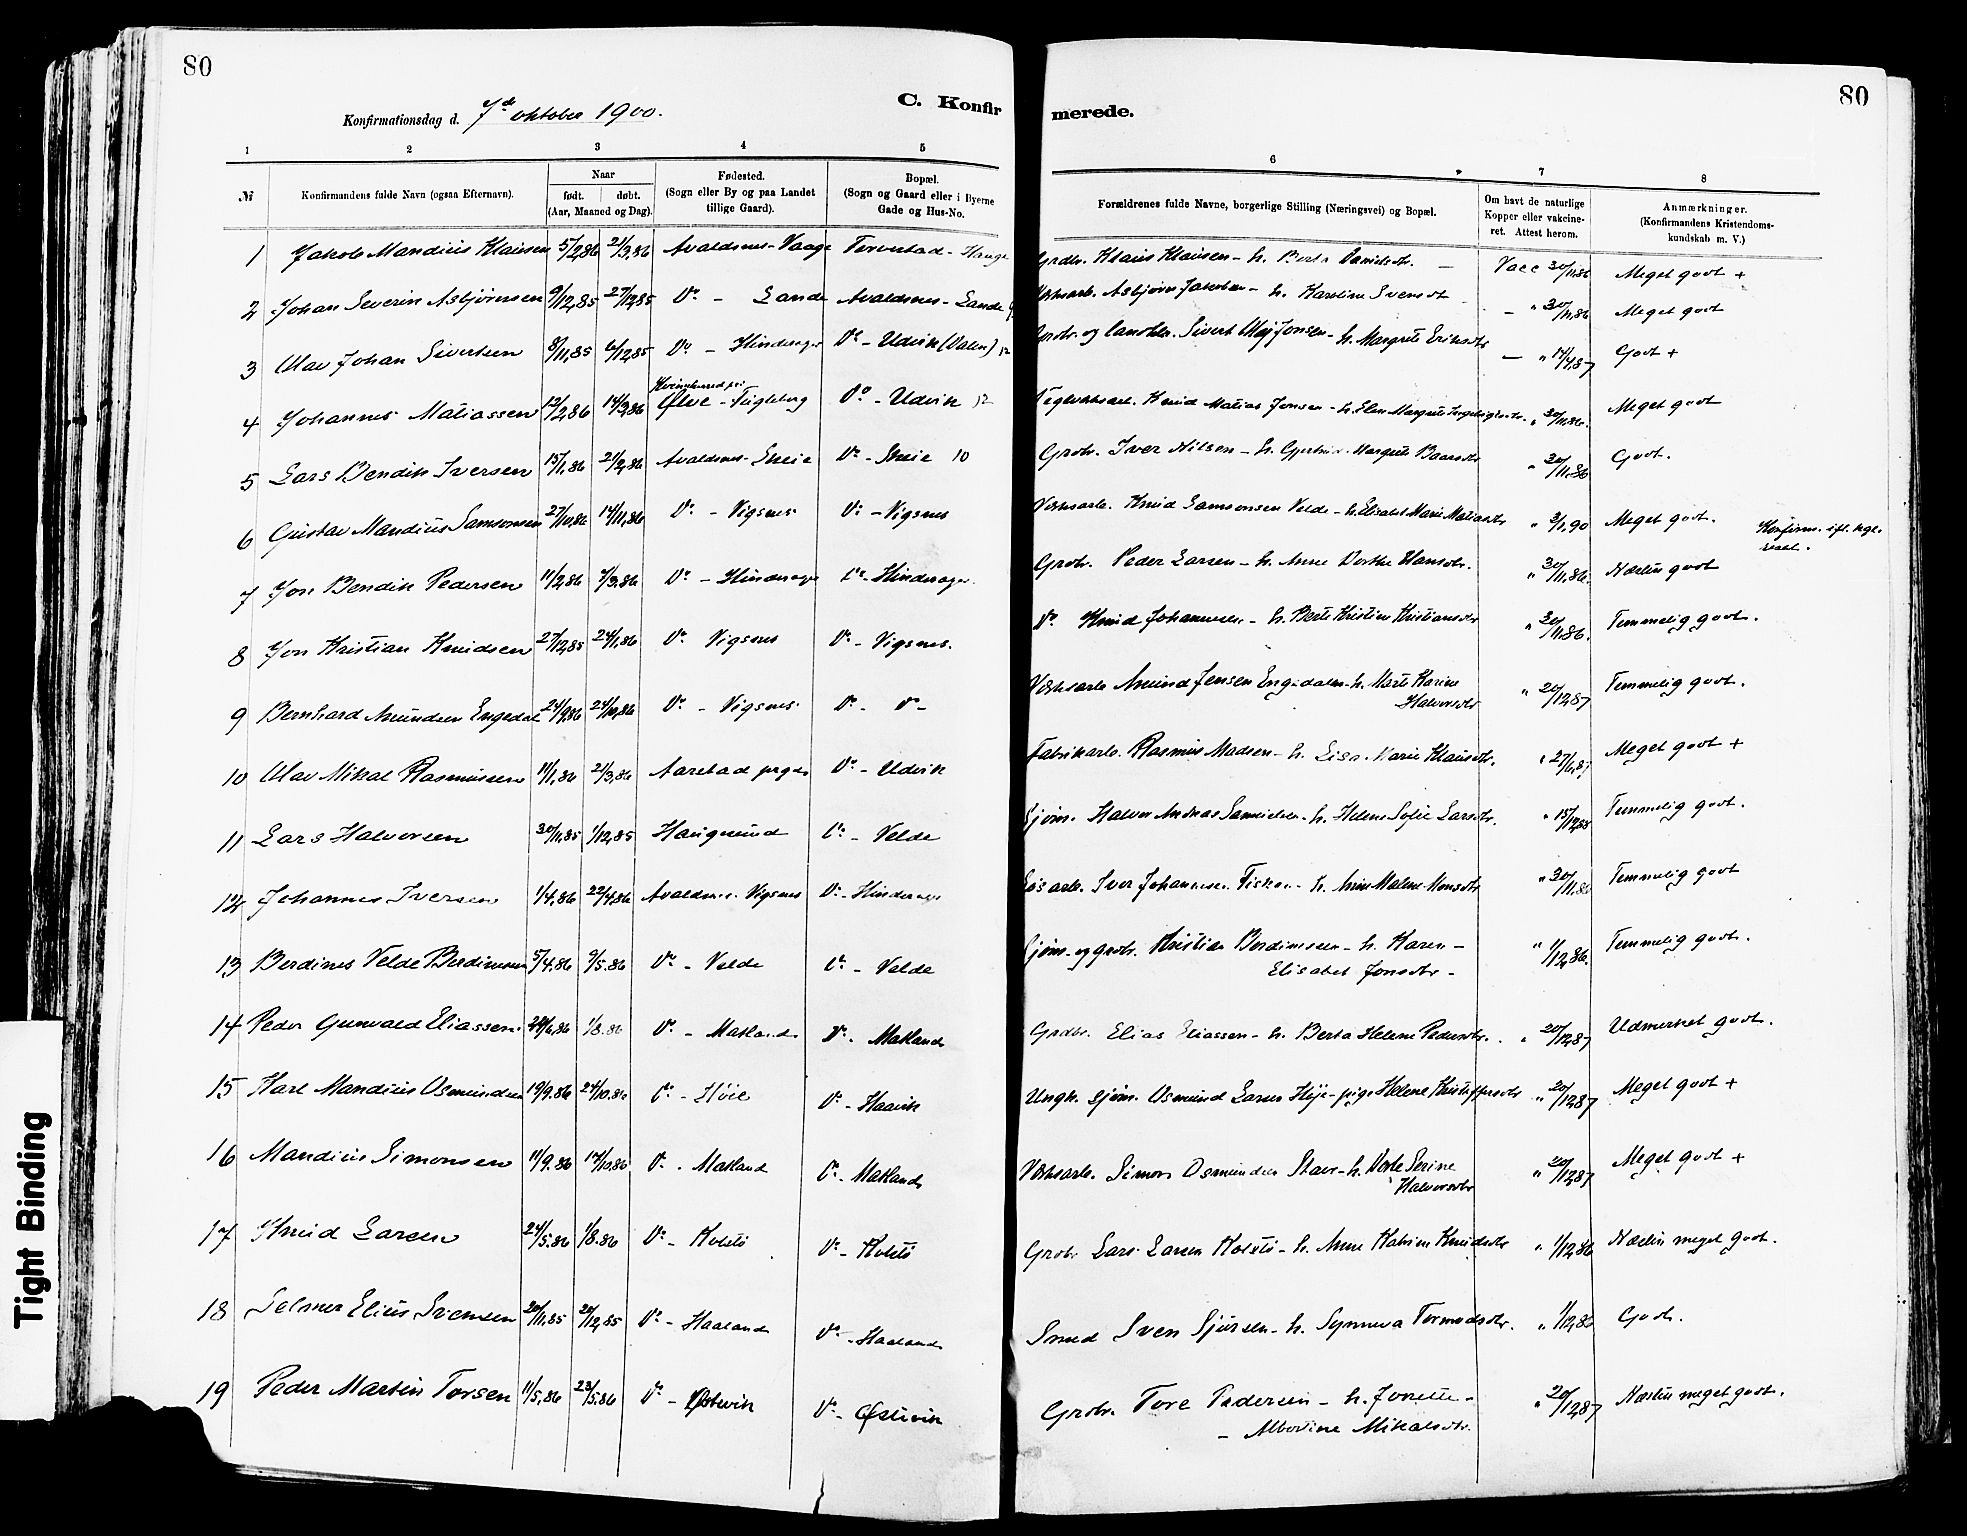 80
80
Konfirmationsdag d. 7de oktober 1900.
C. Konfir
merede.
1 2 3 4 5
6 7 8
№
Konfirmandens fulde Navn (ogsaa Efternavn).
Naar
født. døbt.
(Aar, Maaned og Dag).
Fødested.
(Sogn eller By og paa Landet
tillige Gaard).
Bopæl.
(Sogn og Gaard eller i Byerne
Gade og Hus-No.
Forældrenes fulde Navne, borgerlige Stilling (Næringsvei) og Bopæl.
Om havt de naturlige
Kopper eller vakcine-
ret. Attest herom.
Anmærkninger.
(Konfirmandens Kristendoms-
kundskab m. V.)
1 Jakob Mandius Klausen 5/2,86 21/3,86 Avaldsnes - Vaage Torvestad - Hauge Grdbr. Klaus Klausen - h. Berta Danielsdtr. Vacc 30/11,86 Meget godt +
2 Johan Severin Asbjørnsen 9/12,85 27/12,85 Do - Lande Avaldsnes - Lande Asbjørn Jakobsen - h. Karoline Svensdtr - " 30/11,86 Meget godt
3 Olav Johan Sivertsen 8/11,85 6/12,85 Do - Hinderager Do - Udvik (Valen) 12 Sivert Jonsen - h. Margrete Eriksdtr - " 14/4,87 Godt +
4 Johannes Matiassen 12/2,86 14/3,86 Ølve - Teigleberg Do - Udvik 12 Teglverksarb. Knud Matias Jonsen - h. Elen Margrete " 30/11,86. Meget godt
5 Lars Bendik Iversen 15/1,86 21/2,86 Avaldsnes - Skeie Do - Skeie 10 Grdbr. Iver Nilsen - h. Gjertrud Margrete Baarsdtr " 30/11,86 Godt.
6 Gustav Mandius Samsonsen 27/10,86 14/11,86 Do - Vigsnes Do - Vigsnes Verksarb. Knud Samsonsen Velde - h. Elisabet Marie Matiasdtr " 3/1,90 Meget godt. Konfirm. eft. kgl.
7 Jon Bendik Pedersen 11/2,86 7/3,86 Do - Hinderager Do - Hinderager. Grdbr. Peder Larsen - h. Anne Dorthe Hansdtr. " 30/11,86. Næsten godt
8 Jon Kristian Knudsen 27/12,85 24/1,86 Do. Vigsnes Do - Vigsnes. Do. Knud Johannesen - h. Berte Kristine Kristiansdtr " 30/11,86. Temmelig godt.
9 Bernhard Amundsen Engedal 24/9,86 24/10,86 Do - Vigsnes Do - Do - Verksarb. Amund Jensen Engedalen - h. Marte Karine
Halvorsdtr " 20/12,87 Temmelig godt.
10 Olav Mikal Rasmussen 11/1,86 21/3,86 Aarstad prgd. Do - Udvik Fabrikarb. Rasmus Madsen - h. Lisa Marie Klausdtr. " 27/6,87 Meget godt +
11 Lars Halvorsen 30/11,85 1/12,85 Haugesund Do - Velde Sjøm. Halvor Andreas Samuelsen - h. Helene Sofie Larsdtr. " 15/12,88 Temmelig godt.
12 Johannes Iversen 1/4,86 22/4,86 Avaldsnes. Vigsnes Do - Hinderager Løsarb. Iver Johannesen Fiskaa - h. Anne Malene Monsdtr " 30/11,86 Temmelig godt
13 Berdines Velde Berdinesen 5/4.86 9/5.86 Do - Velde Do - Velde Sjøm. og grdbr. Kristian Berdinesen - h. Karen -
Elisabet Jonsdtr - " 1/12,86. Temmelig godt.
14 Peder Gunvald Eliassen 24/6,86 1/8.86 Do - Matland Do. Matland Grdbr. Elias Eliassen - h. Berta Helene Pedersdtr. " 20/12,87 Udmerket godt.
15 Karl Mandius Osmundsen 19/9.86 24/10.86 Do - Høie Do - Haavik Ungk. sjøm. Osmund Larsen Høje - pige Helene Kristoffersdtr " 20/12,87 Meget godt +
16 Mandius Simonsen 11/9.86 17/10,86 Do. Matland Do - Matland Verksarb. Simon Osmundsen Stave - h. Dorte Serine
Halvorsdtr " 20/12,87 Meget godt +
17 Knud Larsen 24/5.86 1/8.86 Do - Kolstø Do - Kolstø Grdbr. Lars Larsen Kolstø - h. Anne Katrine Knudsdtr " 1/12,86 Næsten meget godt.
18 Selmer Elius Svensen 20/11,85 20/12,85 Do - Haaland Do - Haaland Smed Sven Sjursen - h. Synneva Tormodsdtr. " 1/12,86 Godt.
19 Peder Martin Torsen 11/5,86 23/5.86 Do - Østevik Do - Østevik Grdbr. Tore Pedersen - h. Jonette -
- Albertine Mikalsdtr. " 20/12,87 Næsten meget godt.
Tight Binding